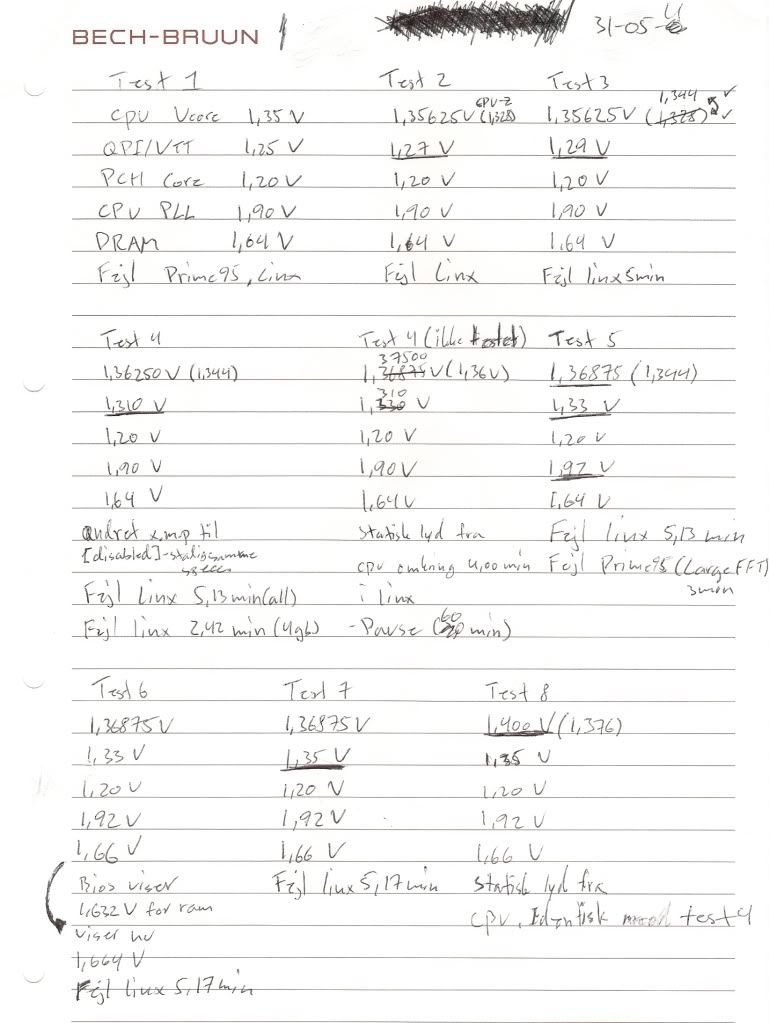 BECH-BRUUN 31-05-
Test 1 Test 2 Test 3
CPU Vcore 1,35 V 1,35625V CPU-Z (1,328) 1,35625V (1,328) 1,344
QPI/VTT 1,25 V 1,27 V 1,29 V
PCH Core 1,20 V 1,20 V 1,20 V
CPU PLL 1,90 V 1,90 V 1,90 V
DRAM 1,64 V 1,64 V 1,64 V
Fejl Prime95, Linx Fejl Linx Fejl linx 5min
Test 4 Test 4 (ikke testet) Test 5
1,36250V (1,344) 1,36875 37500 V (1,36V) 1,36875 (1,344)
1,310 V 1,330 310 V 1,33 V
1,20 V 1,20 V 1,20 V
1,90 V 1,90V 1,92 V
1,64 V 1,64V 1,64 V
Ændret x.m.p til Statisk lyd fra Fejl linx 5,13 min
[disabled]- CPU omkring 4,00 min Fejl Prime95 (Large FFT)
3 min
Fejl Linx 5,13 min (all) i linx
Fejl linx 2,42 min (4gb) -Pause (60 min)
Test 6 Test 7 Test 8
1,36875V 1,36875V 1,400 V (1,376)
1,33 V 1,35 V 1,35 V
1,20 V 1,20 V 1,20 V
1,92V 1,92V 1,92 V
1,66 V 1,66 V 1,66 V
Bios viser Fejl linx 5,17 min Statisk lyd fra
1,632V for ram CPU. Identisk med test 4
viser nu
1,664 V
Fejl linx 5,17 min